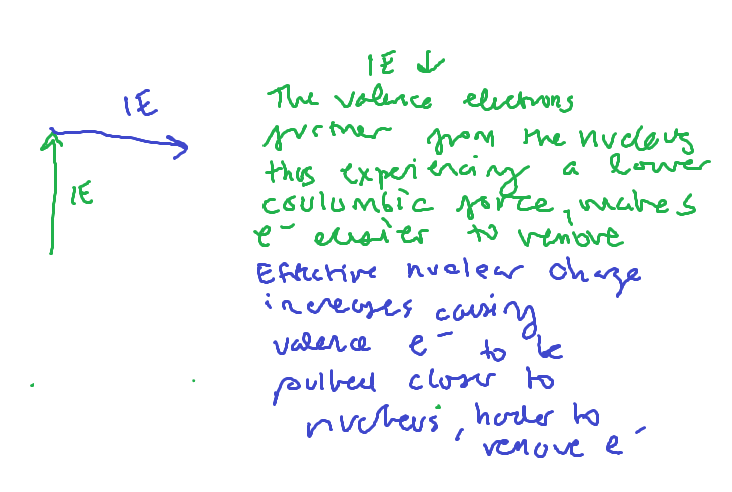 IE
IE
IE ↓
The valence electrons
further from the nucleus
thus experiencing a lower
coulumbic force, makes
e⁻ easier to remove
Effective nuclear charge
increases causing
valence e⁻ to be
pulled closer to
nucleus, harder to
remove e⁻